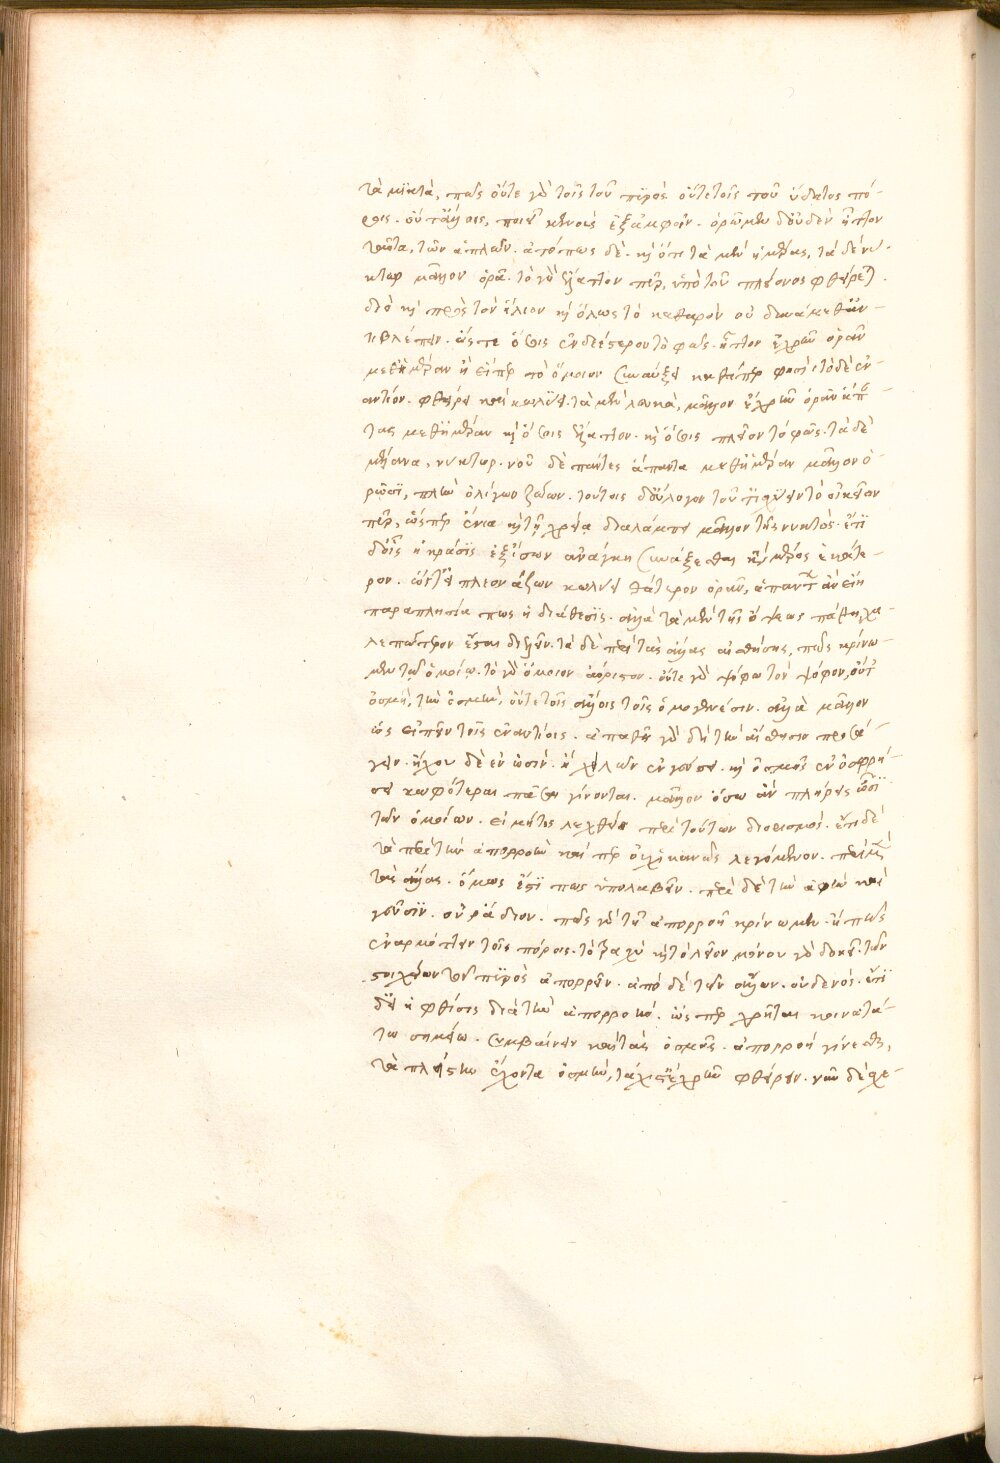 τὰ μϊκτὰ, πῶς οὔτε γὰρ τοῖς τοῦ πϋρὸς οὔτε τοῖς τοῦ ὕδατος πό-
ροις. οὐ τἄλλοις, ποιεῖ κϊνοὺς ἐξ ἀμφοῖν. ὁρῶμεν δ' οὐδὲν ἧττον
ταῦτα, τῶν ἁπλῶν. ἀτόπως δὲ. καὶ ὅτι τὰ μὲν ἡμέρας, τὰ δὲ νύ-
κτωρ μᾶλλον ὁρᾶ. τὸ γὰρ ἔλαττον πῦρ, ὑπὸ τοῦ πλείονος φθείρεται.
διὸ καὶ πρὸς τὸν ἥλιον καὶ ὅλως τὸ καθαρὸν οὐ δυνάμεθ' ἀν-
τιβλέπειν. ὥστε ὅσοις ἐνδεέστερον τὸ φῶς. ἧττον ἐχρῆν ὁρᾶν
μεθ' ἡμέραν ἢ εἴπερ τὸ ὅμοιον συναύξει καθάπερ φησὶ τὸ δὲ ἐν-
αντίον. φθείρει καὶ κωλύει. τὰ μὲν λευκὰ, μᾶλλον ἐχρῆν ὁρᾶν ἅπαν-
τας μεθ' ἡμέραν καὶ ὅσοις ἔλαττον. καὶ ὅσοις πλεῖον τὸ φῶς. τὰ δὲ
μέλανα, νύκτωρ. νῦν δὲ πάντες ἅπαντα μεθ' ἡμέραν μᾶλλον ὁ-
ρῶσϊ, πλὴν ὀλίγων ζώων. τούτοις δ' εὔλογον τοῦτ' ἰσχύειν τὸ οἰκεῖον
πῦρ, ὥσπερ ἔνια καὶ τῇ χρόα διαλάμπει μᾶλλον τῆς νυκτός. ἔτϊ
δ' οἷς ἡ κρᾶσϊς ἐξ ἴσων ἀνάγκη συναύξεσθαι κατὰ μέρος ἑκάτε-
ρον. ὥστ' εἰ πλεονάζων κωλύει θάτερον ὁρᾶν, ἁπάντων ἂν εἴη
παραπλησία πως ἡ διάθεσϊς. ἀλλὰ τὰ μὲν τῆς ὄψεως πάθη, χα-
λεπώτερον ἔσται διελεῖν. τὰ δὲ περὶ τὰς ἄλλας αἰσθήσεις, πῶς κρίνω-
μεν τῷ ὁμοίῳ. τὸ γὰρ ὅμοιον ἀόριστον. οὔτε γὰρ ψόφω τὸν ψόφον, οὔτ'
ὀσμῆ, τὴν ὀσμὴν, οὔτε τοῖς ἄλλοις τοῖς ὁμογενέσιν. ἀλλὰ μᾶλλον
ὡς εἰπεῖν τοῖς ἐναντίοις. ἀπαθῆ γὰρ δεῖ τὴν αἴσθησιν προσά-
γειν. ἤχου δὲ ἐν ὠσὶν. ἢ χυλῶν ἐν γεύσει. καὶ ὀσμῆς ἐν ὀσφρή-
σει κωφότεραι πᾶσαι γίνονται. μᾶλλον ὅσω ἂν πλήρεις ὦσϊ
τῶν ὁμοίων. εἰ μή τις λεχθείη περὶ τούτων διορισμός. ἔτι δὲ
τὰ περὶ τὴν ἀπορροὴν καίπερ οὐχ ἱκανῶς λεγόμενον. περὶ μὲν
τὰς ἄλλας. ὅμως ἔστϊ πως ὑπολαβεῖν. περὶ δὲ τὴν ἁφὴν καὶ
γεῦσϊν. οὐ ῥάδιον. πῶς γὰρ τῇ ἀπορροῇ κρίνωμεν. ἢ πῶς
ἐναρμόττειν τοῖς πόροις. τὸ τραχὺ καὶ τὸ λεῖον μόνου γὰρ δοκεῖ. τῶν
στοιχείων τοῦ πϋρὸς ἀπορρεῖν. ἀπὸ δὲ τῶν ἄλλων. οὐδενός. ἔτϊ
δ' εἰ ἡ φθίσις διὰ τὴν ἀπορροήν. ὥσπερ χρῆται κοινοτά-
τω σημείω. συμβαίνειν καὶ τὰς ὀσμὰς. ἀπορροῆ γίνεσθαι,
τὰ πλείστην ἔχοντα ὀσμὴν, τάχιστ' ἐχρῆν φθείρειν. νῦν δὲ σχε-